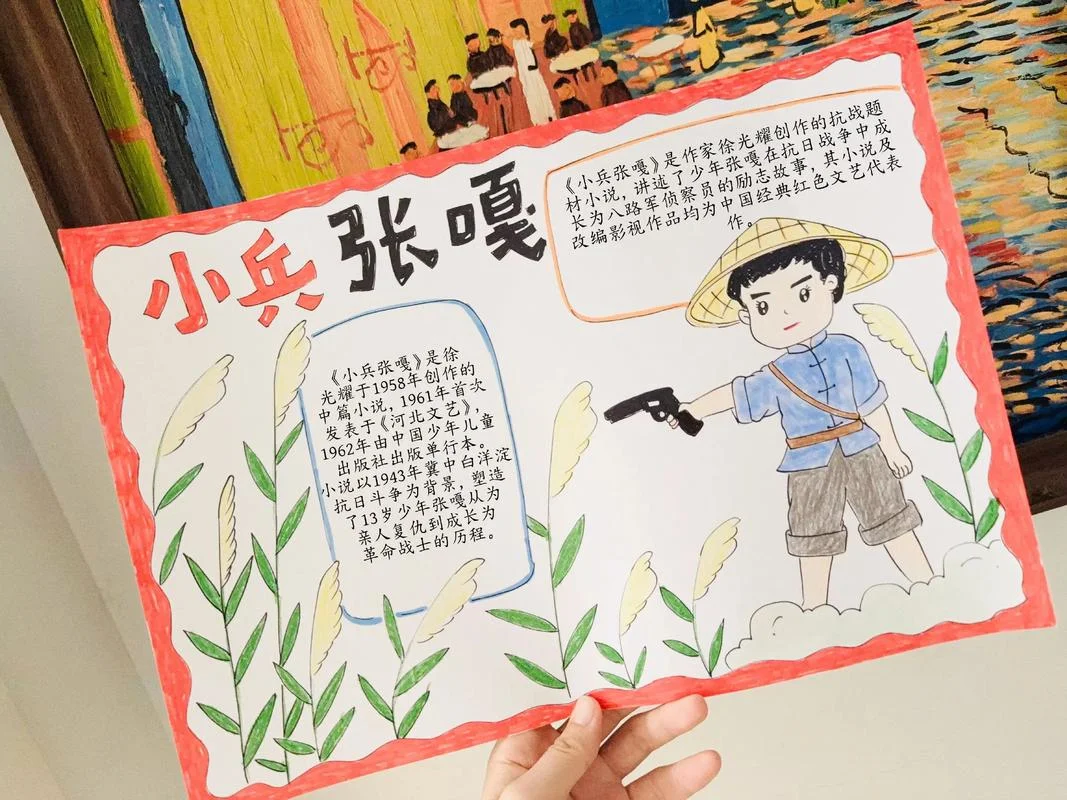 小兵张嘎
《小兵张嘎》是作家徐光耀创作的抗战题
材小说，讲述了少年张嘎在抗日战争中成
长为八路军侦察员的励志故事，其小说及
改编影视作品均为中国经典红色文艺代表
作。
《小兵张嘎》是徐
光耀于1958年创作的
中篇小说，1961年首次
发表于《河北文艺》，
1962年由中国少年儿童
出版社出版单行本。
小说以1943年冀中白洋淀
抗日斗争为背景，塑造
了13岁少年张嘎从为
亲人复仇到成长为
革命战士的历程。